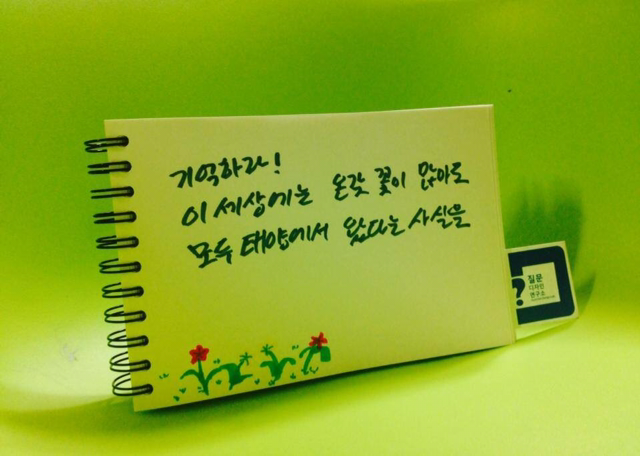 기억하라!
이 세상에는 온갖 꽃이 많아도
모두 태양에서 왔다는 사실을
?
질문
디자인
연구소